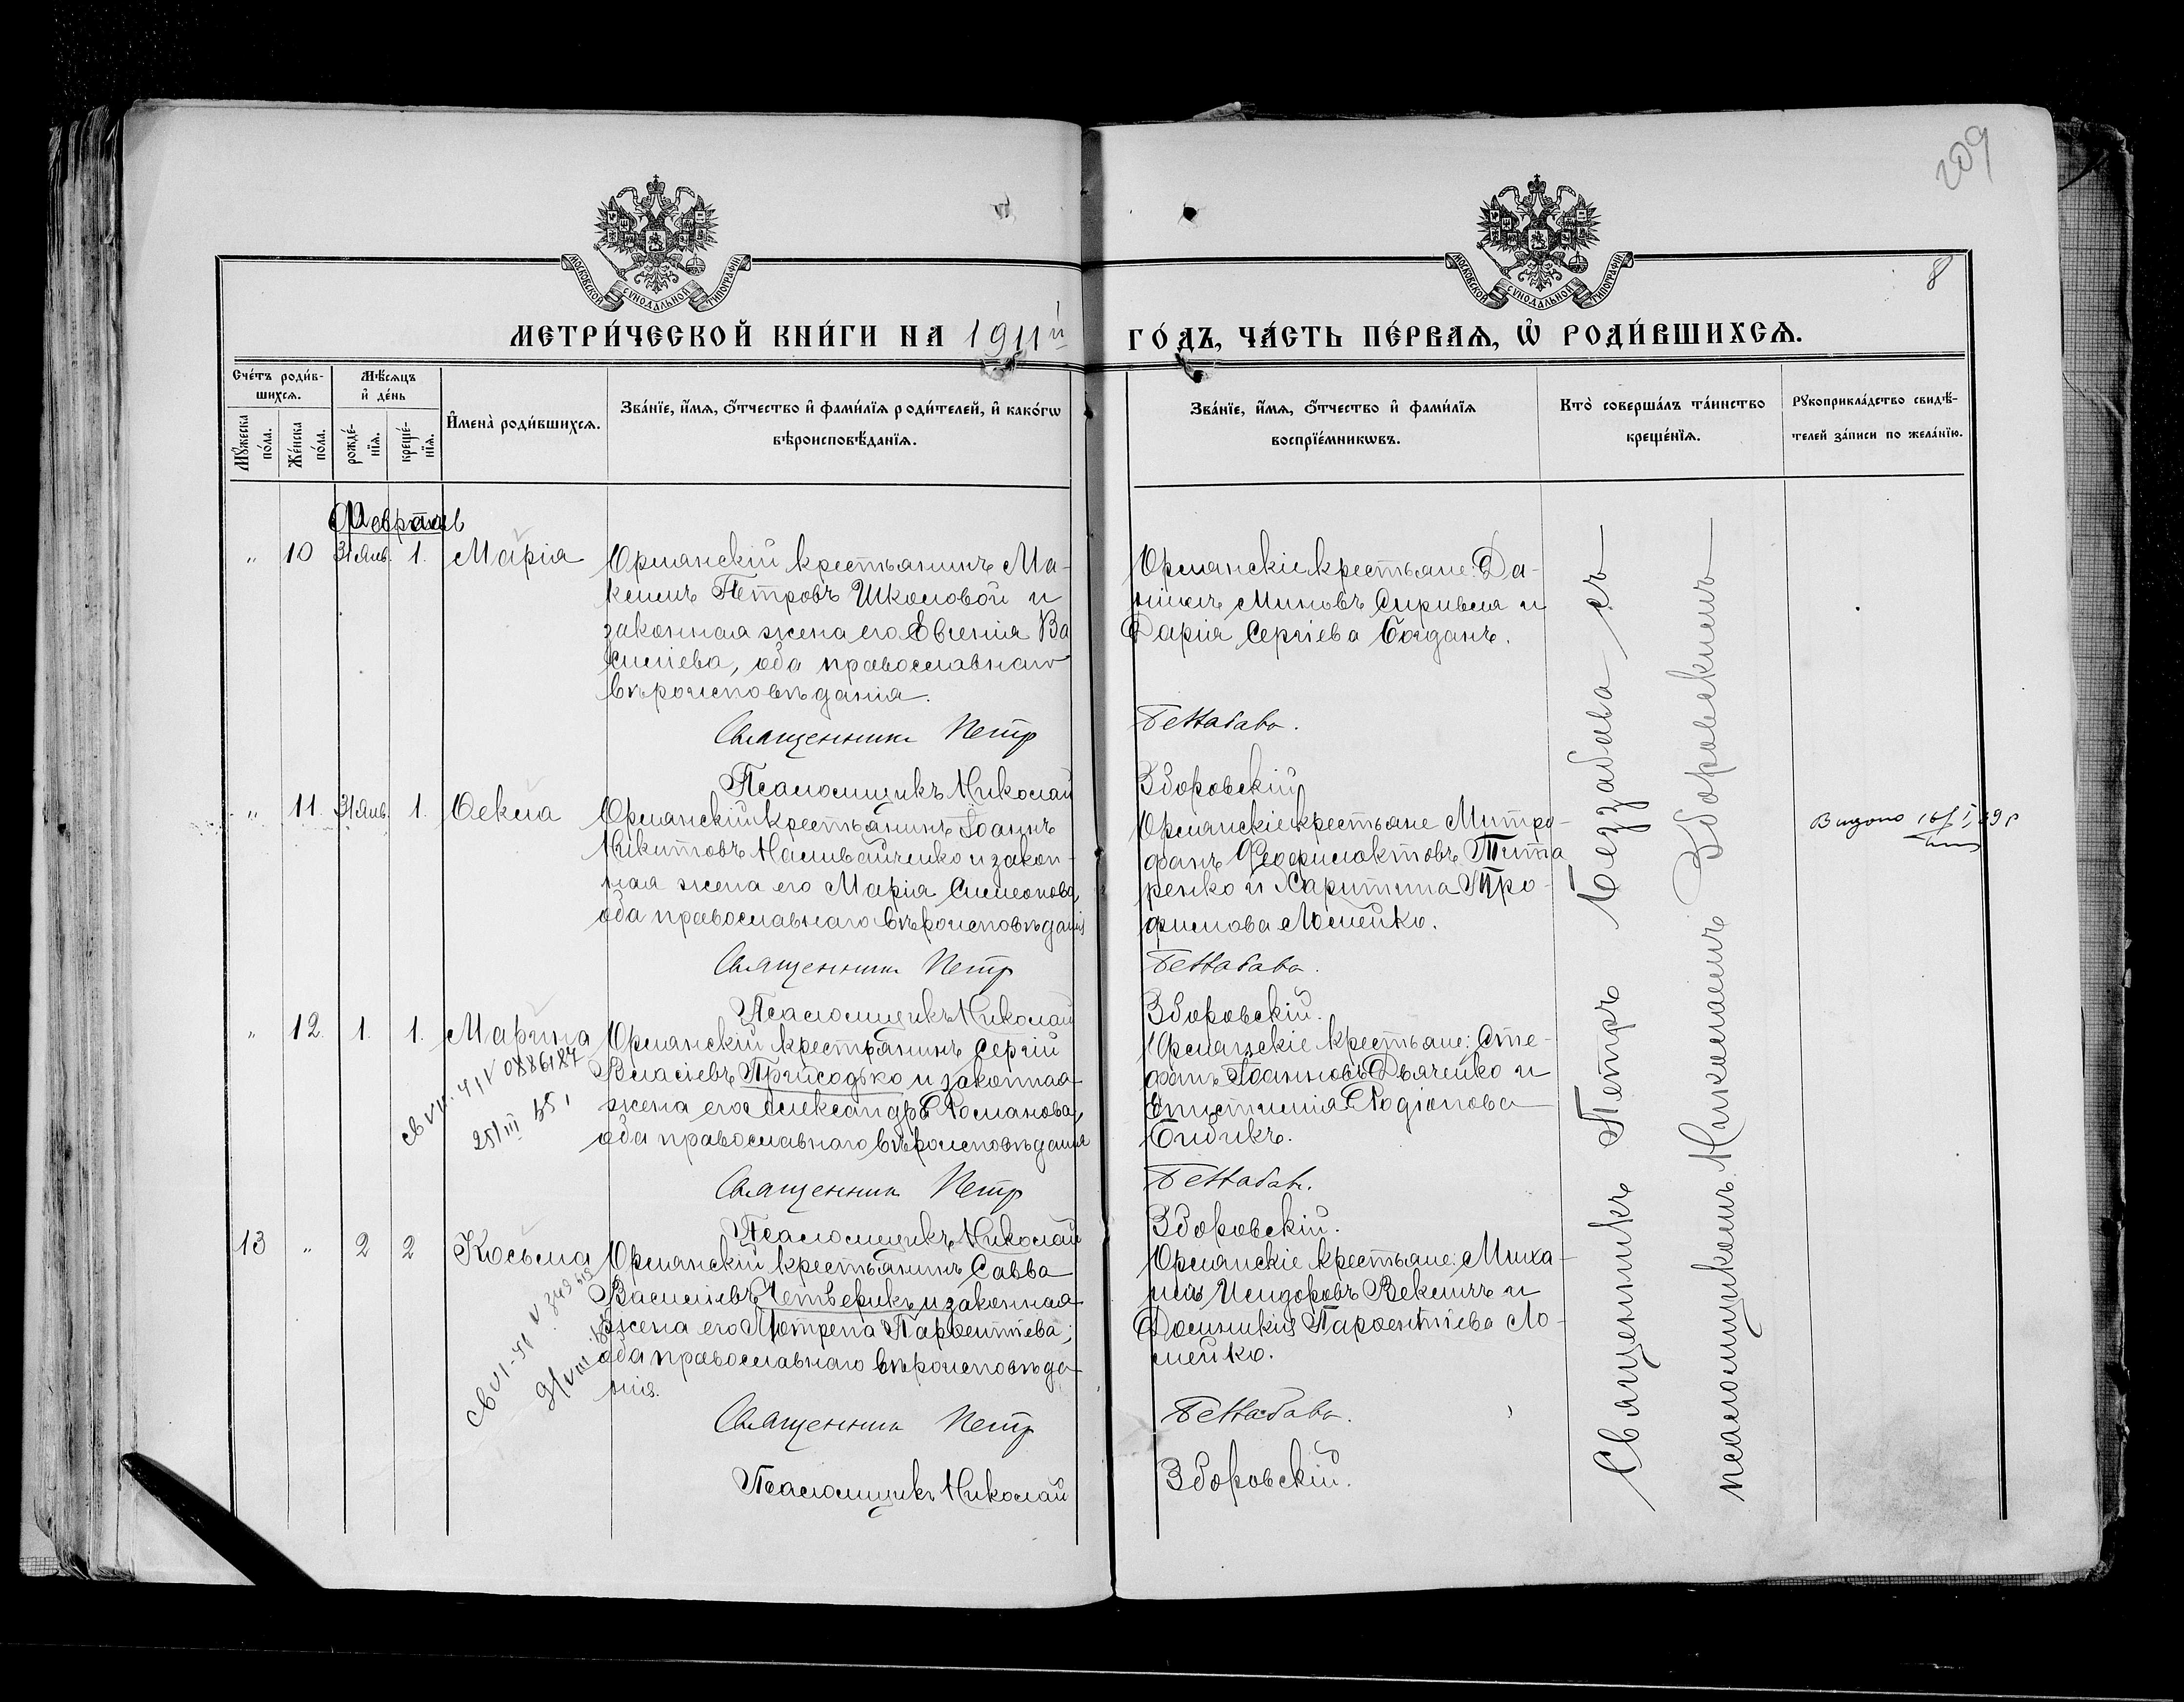 209
8
МОСКОВСКОЙ СѴНОДАЛЬНОЙ ТИПОГРАФІИ
МОСКОВСКОЙ СѴНОДАЛЬНОЙ ТИПОГРАФІИ
МЕТРИ́ЧЕСКОЙ КНИ́ГИ НА 1911й ГО́ДЪ, ЧА́СТЬ ПЕ́РВАѦ, Ѽ РОДИ́ВШИХСѦ.
Сче́тъ роди́в-
шихсѧ.
Мꙋ́жеска по́ла.
Же́нска по́ла.
Мѣ́сяцъ
и҆ де́нь
рожде́-
нїѧ.
креще́-
нїѧ.
И҆мена̀ роди́вшихсѧ.
Зва́нїе, и҆́мѧ, ѻ҆́тчество и҆ фами́лїѧ роди́телей, и҆ како́гѡ
вѣроисповѣ́данїѧ.
Зва́нїе, и҆́мѧ, ѻ҆́тчество и҆ фами́лїѧ
воспрїе́мникѡвъ.
Кто̀ соверша́лъ та́инство
креще́нїѧ.
Рꙋкоприкла́дство свидѣ́-
телей за́писи по жела́нїю.
Февраль
„ 10 31 Янв. 1. Марія
Орланскій крестьянинъ Ма-
ксимъ Петровъ Школовой и
законная жена его Евгенія Ва
силіева, оба православнаго
вѣроисповѣданія.
Священникъ Петр
Псаломщикъ Николай
Орланскіе крестьяне: Да-
ніилъ Миновъ и
Дарія Сергіева Богданъ.
Беззабава.
Зборовскій
„ 11. 31 Янв. 1. Ѳекла
Орланскій крестьянинъ Іоаннъ
Никитовъ Наливайченко и закон-
ная жена его Марія Симеонова,
оба православнаго вѣроисповѣданія
Священникъ Петр
Псаломщикъ Николай
Орланскіе крестьяне Митро-
фанъ Феофилактовъ Тита
ренко и Харитина Тро-
фимова Ломейко.
Беззабава.
Зборовскій.
Видано 16/I, 29 р
„ 12. 1. 1. Марина
Орланскій крестьянинъ Сергій
Власіевъ Приходько и законная
жена его Александра Романова,
оба православнаго вѣроисповѣданія
Священникъ Петр
Псаломщикъ Николай
25/III 35,
Орланскіе крестьяне: Сте-
фанъ Іоанновъ Дьяченко и
Епистимія Родіонова
Бибикъ.
Беззабава.
Зборовскій.
13 „ 2 2 Косьма
Орланскій крестьянинъ Савва
Василіевъ Четверикъ и законная
жена его Мотрена Парѳентіева;
оба православнаго вѣроисповѣда
нія.
Священникъ Петр
Псаломщикъ Николай
Орланскіе крестьяне: Миха-
илъ Исидоровъ Векличъ и
Домникія Парѳентіева Ло-
мейко.
Беззабава.
Зборовскій.
Священникъ Петръ Беззабава съ
псаломщикомъ Николаемъ Зборовскимъ